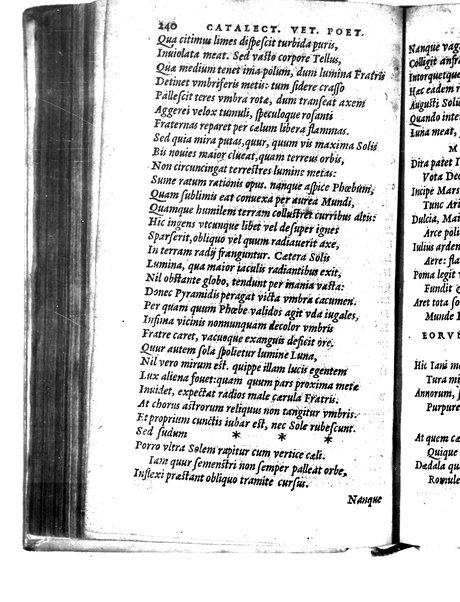 240 CATALECT. VET. POET.
Qua citimus limes dispescit turbida puris,
Inuiolata meat. Sed vasto corpore Tellus,
Quæ medium tenet ima polum, dum lumina Fratris
Detinet vmbriferis metis: tum sidere crasso
Pallescit teres vmbra rotæ, dum transeat axem
Aggerei velox tumuli, speculoque rosanti
Fraternas reparet per cælum libera flammas.
Sed quia mira putas, quur, quum vis maxima Solis
Bis nouies maior clueat, quam terreus orbis,
Non circuncingat terrestres lumine metas:
Sume ratum rationis opus. nanque aspice Phœbum,
Quam sublimis eat conuexa per aurea Mundi,
Quamque humilem terram collustret curribus altis:
Hic ingens vtcunque libet vel desuper ignes
Sparserit, obliquo vel quum radiauerit axe,
In terram radij franguntur. Cætera Solis
Lumina, qua maior iaculis radiantibus exit,
Nil obstante globo, tendunt per inania vasta:
Donec Pyramidis peragat victa vmbra cacumen.
Per quam quum Phœbe validos agit vda iugales,
Infima vicinis nonnunquam decolor vmbris
Fratre caret, vacuoque exanguis deficit ore.
Quur autem sola spolietur lumine Luna,
Nil vero mirum est. quippe illam lucis egentem
Lux aliena fouet: quam quum pars proxima metæ
Inuidet, expectat radios male cærula Fratris.
At chorus astrorum reliquus non tangitur vmbris.
Et proprium cunctis iubar est, nec Sole rubescunt.
Sed sudum * * *
Porro vltra Solem rapitur cum vertice cæli.
Iam quur semenstri non semper palleat orbe,
Inflexi præstant obliquo tramite cursus.
Nanque
Nanque vag
Colligit anfra
Intorquetque
Hæc eadem
Augusti Solis
Quando inte
Luna meat,
M
Dira patet I
Vota Dec
Incipe Mars
Tunc Ari
Dulcia, Mai
Arce poli
Iulius ardens
Aere: fla
Poma legit
Fundit
Aret tota so
Munde
EORVM
Hic Iani m
Tura mi
Annorum,
Purpure
At quem cæ
Quique
Dædala qua
Romule